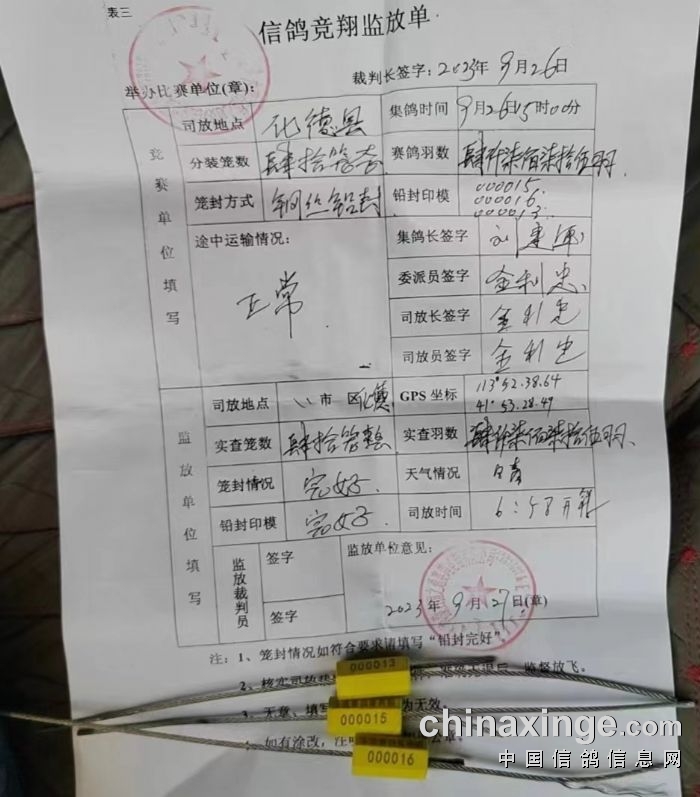 表三
信鸽竞翔监放单
举办比赛单位(章):
裁判长签字: 2023年9月26日
竞赛单位填写
司放地点 化德县 集鸽时间 9月26日15时00分
分装笼数 肆拾笼整 赛鸽羽数 肆仟柒佰柒拾伍羽
笼封方式 钢丝铅封 铅封印模 000015.
000016.
000013.
途中运输情况:
正常
集鸽长签字
委派员签字 金利忠
司放长签字 金利忠
司放员签字 金利忠
监放单位填写
司放地点 市 区化德 GPS 坐标 113°52.38.64
41°53.28.49
实查笼数 肆拾笼整 实查羽数 肆仟柒佰柒拾伍羽
笼封情况 完好. 天气情况 晴
铅封印模 完好. 司放时间 6:58开笼
监放裁判员
签字
签字
监放单位意见:
2023年9月27日(章)
注: 1、笼封情况如符合要求请填写“铅封完好”。
2、核实司放 监督放飞。
3、无章、填写 为无效。
如有涂改,注明
000013
000015
000016
chinaxinge.com
中国信鸽信息网